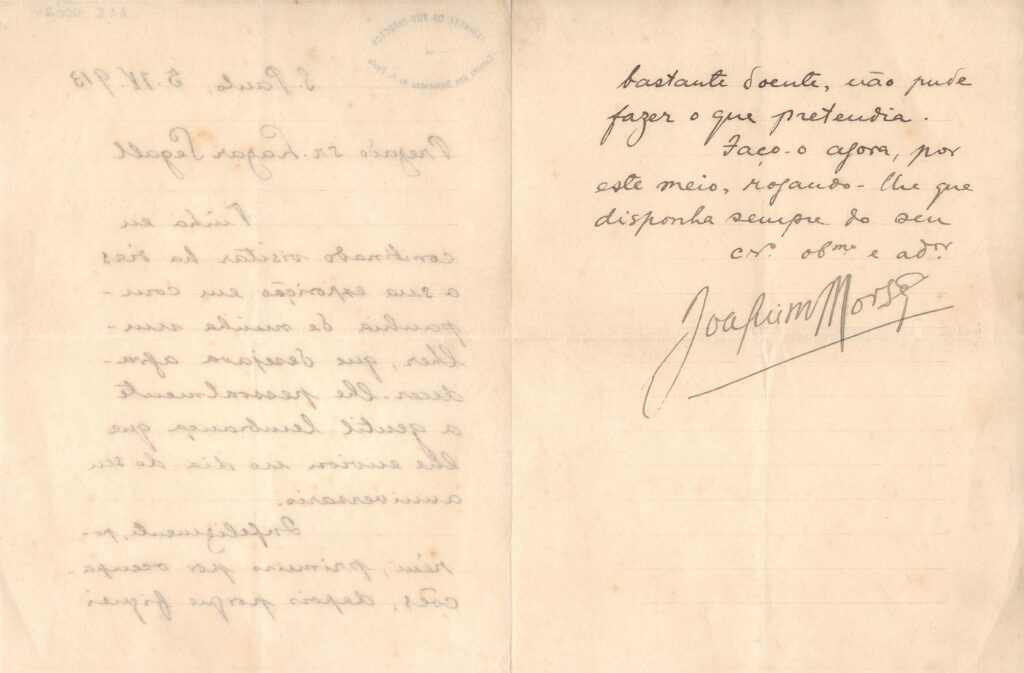 S. Paulo 5.IV.913
Prezado Sr. Lazar Segall
Tinha eu
combinado visitar ha dias
a sua exposição em com-
panhia de minha mu-
lher, que desejava agra-
decer-lhe pessoalmente
a gentil lembrança que
lhe enviou no dia do seu
anniversario.
Infelizmente, po-
rém, primeiro por occupa-
ções, depois porque fiquei
bastante doente, não pude
fazer o que pretendia.
Faço-o agora, por
este meio, rogando-lhe que
disponha sempre do seu
cr.º obmº e adºr
Joaquim Morse